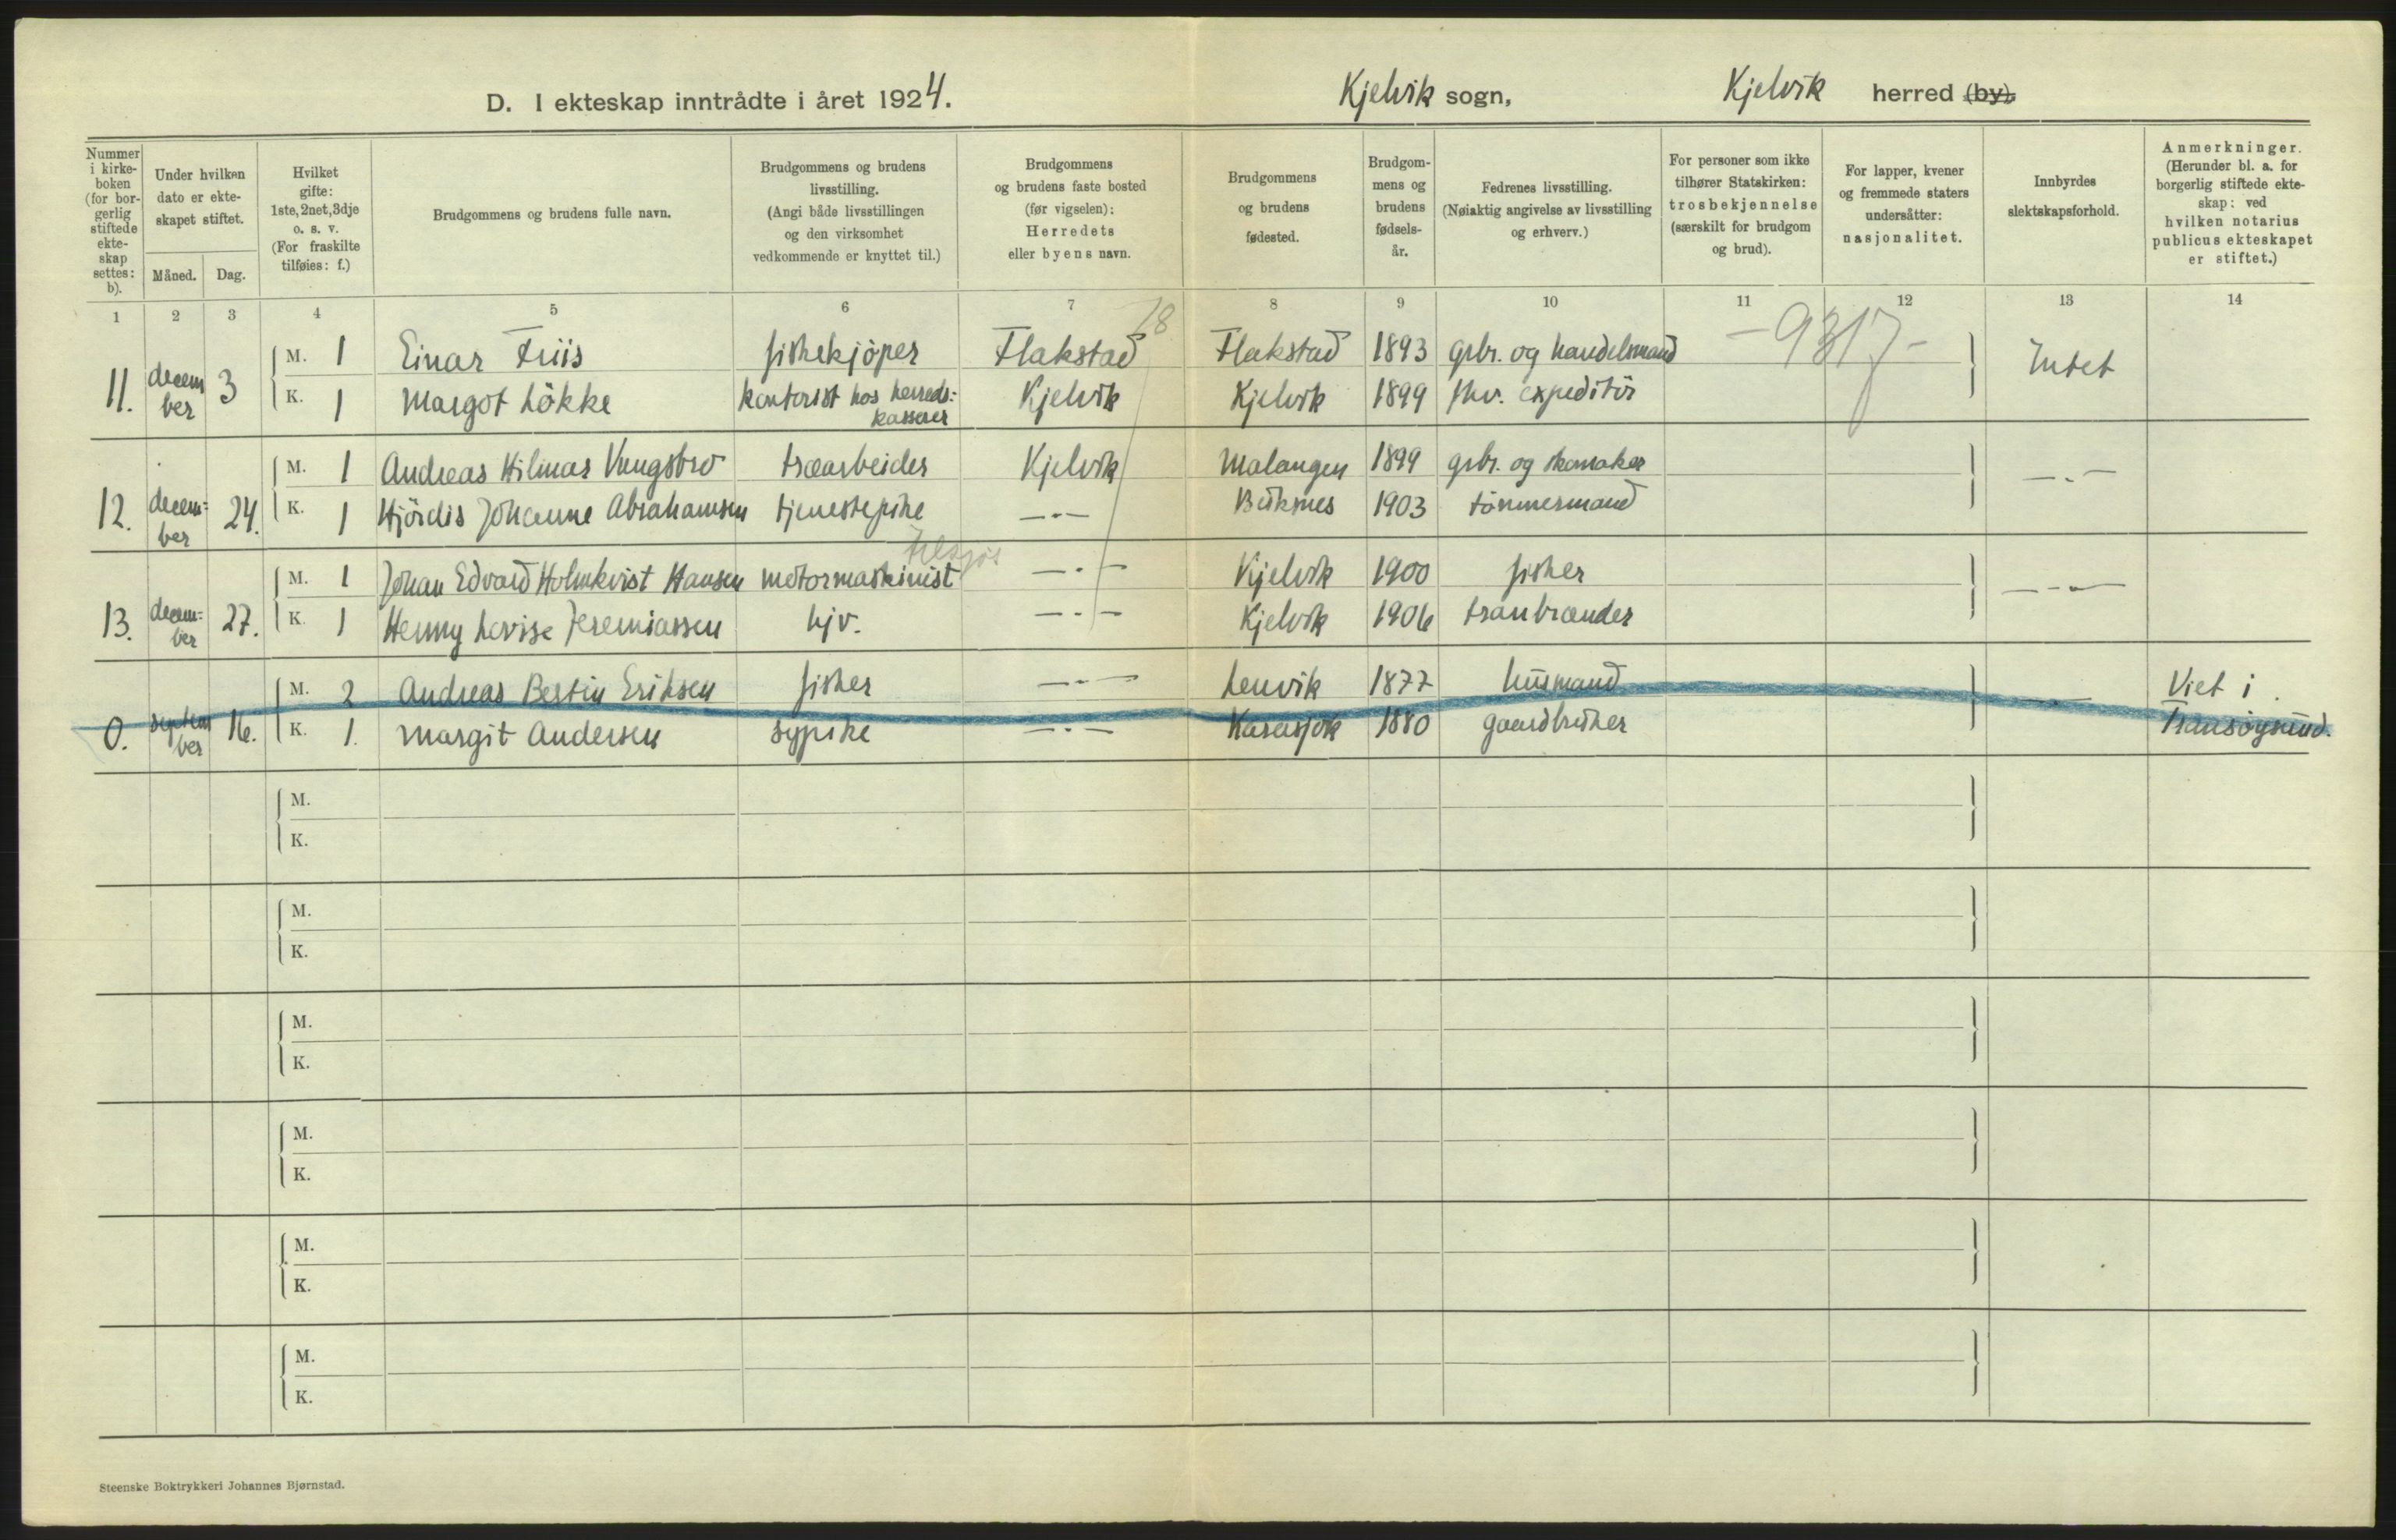 D. I ekteskap inntrådte i året 1924. Kjelvik sogn, Kjelvik herred (by).
Nummer i kirke-boken (for bor-gerlig stiftede ekte-skap settes: b).
Under hvilken dato er ekte-skapet stiftet.
Måned. Dag.
Hvilket gifte: 1ste, 2net, 3dje o. s. v. (For fraskilte tilføies: f.)
Brudgommens og brudens fulle navn.
Brudgommens og brudens livsstilling. (Angi både livsstillingen og den virksomhet vedkommende er knyttet til.)
Brudgommens og brudens faste bosted (før vigselen): Herredets eller byens navn.
Brudgommens og brudens fødested.
Brudgom-mens og brudens fødsels-år.
Fedrenes livsstilling. (Nøiaktig angivelse av livsstilling og erhverv.)
For personer som ikke tilhører Statskirken: trosbekjennelse (særskilt for brudgom og brud).
For lapper, kvener og fremmede staters undersåtter: nasjonalitet.
Innbyrdes slektskapsforhold.
Anmerkninger. (Herunder bl. a. for borgerlig stiftede ekte-skap: ved hvilken notarius publicus ekteskapet er stiftet.)
1 2 3 4 5 6 7 8 9 10 11 12 13 14
18
-9317-
11. december 3 M. 1 Einar Friis fiskekjöper Flakstad Flakstad 1893 grbr. og handelsmand Intet
K. 1 Margot Lökke kontorist hos herreds-kasserer Kjelvik Kjelvik 1899 fhv. expeditör
12. decem-ber 24. M. 1 Andreas Hilmar Vungsbro træarbeider Kjelvik Malangen 1899 grbr. og skomaker — . —
K. 1 Hjördis Johanne Abrahamsen tjenestepike — . — Buksnes 1903 tömmermand
13. decem-ber 27. M. 1 Johan Edvard Holmkvist Hansen motormaskinist — . — Kjelvik 1900 fisker — . —
K. 1 Henny Lovise Jeremiassen hjv. — . — Kjelvik 1906 tranbrænder
0. september 16. M. 2 Andreas Bertin Eriksen fisker — . — Lenvik 1877 husmand Viet i
K. 1. Margit Andersen sypike — . — Karasjok 1880 gaardbruker Tromsöysund.
M.
K.
M.
K.
M.
K.
M.
K.
M.
K.
M.
K.
Steenske Boktrykkeri Johannes Bjørnstad.